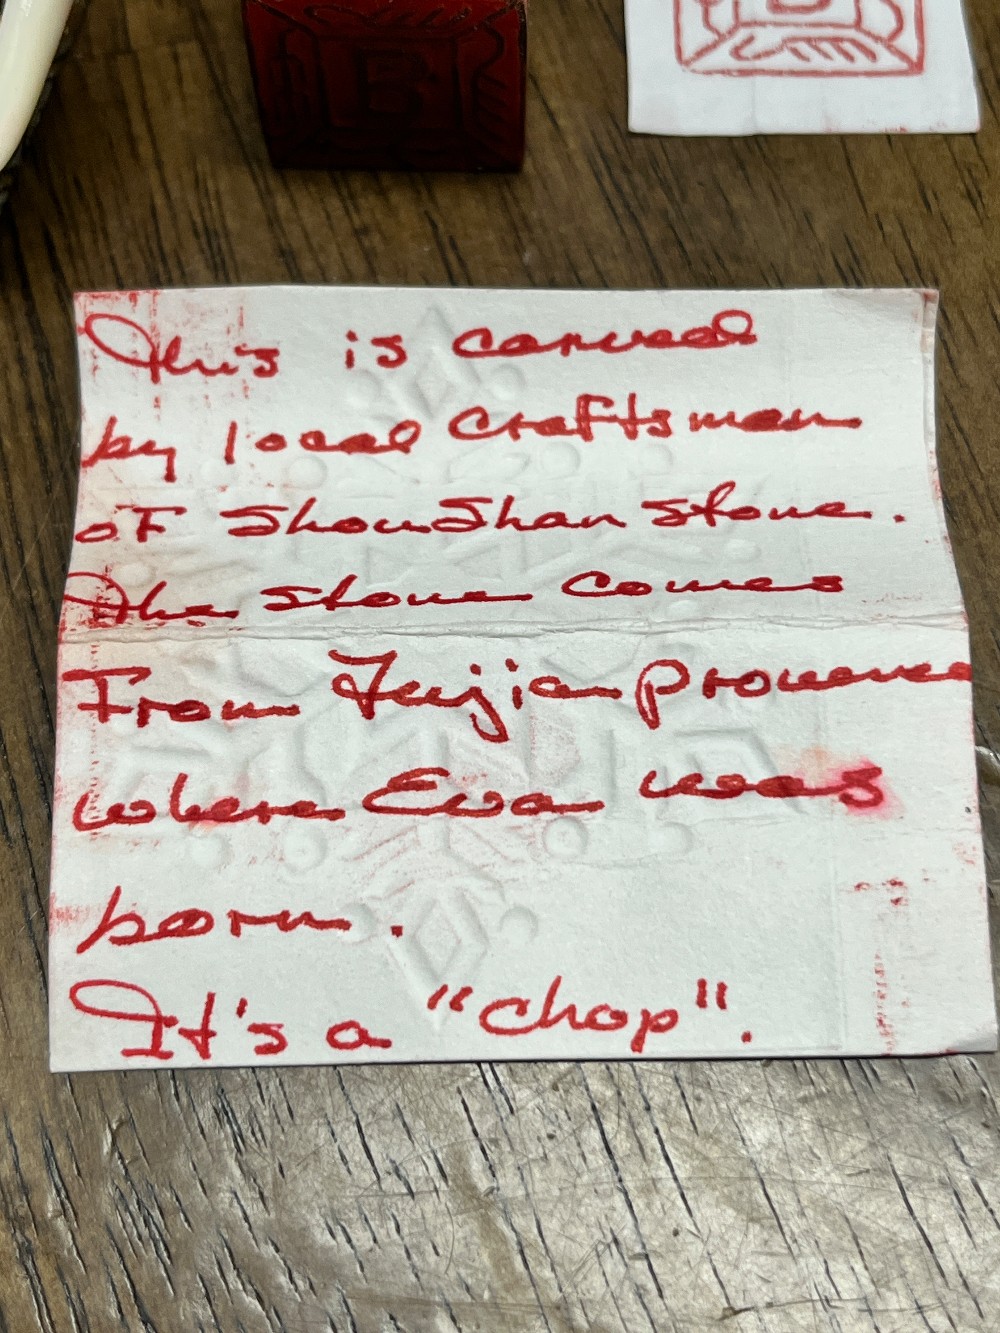 B
This is carved
by local craftsmen
of ShouShan stone.
The stone comes
From Fujian provence
where Eva was
born.
It's a "chop".